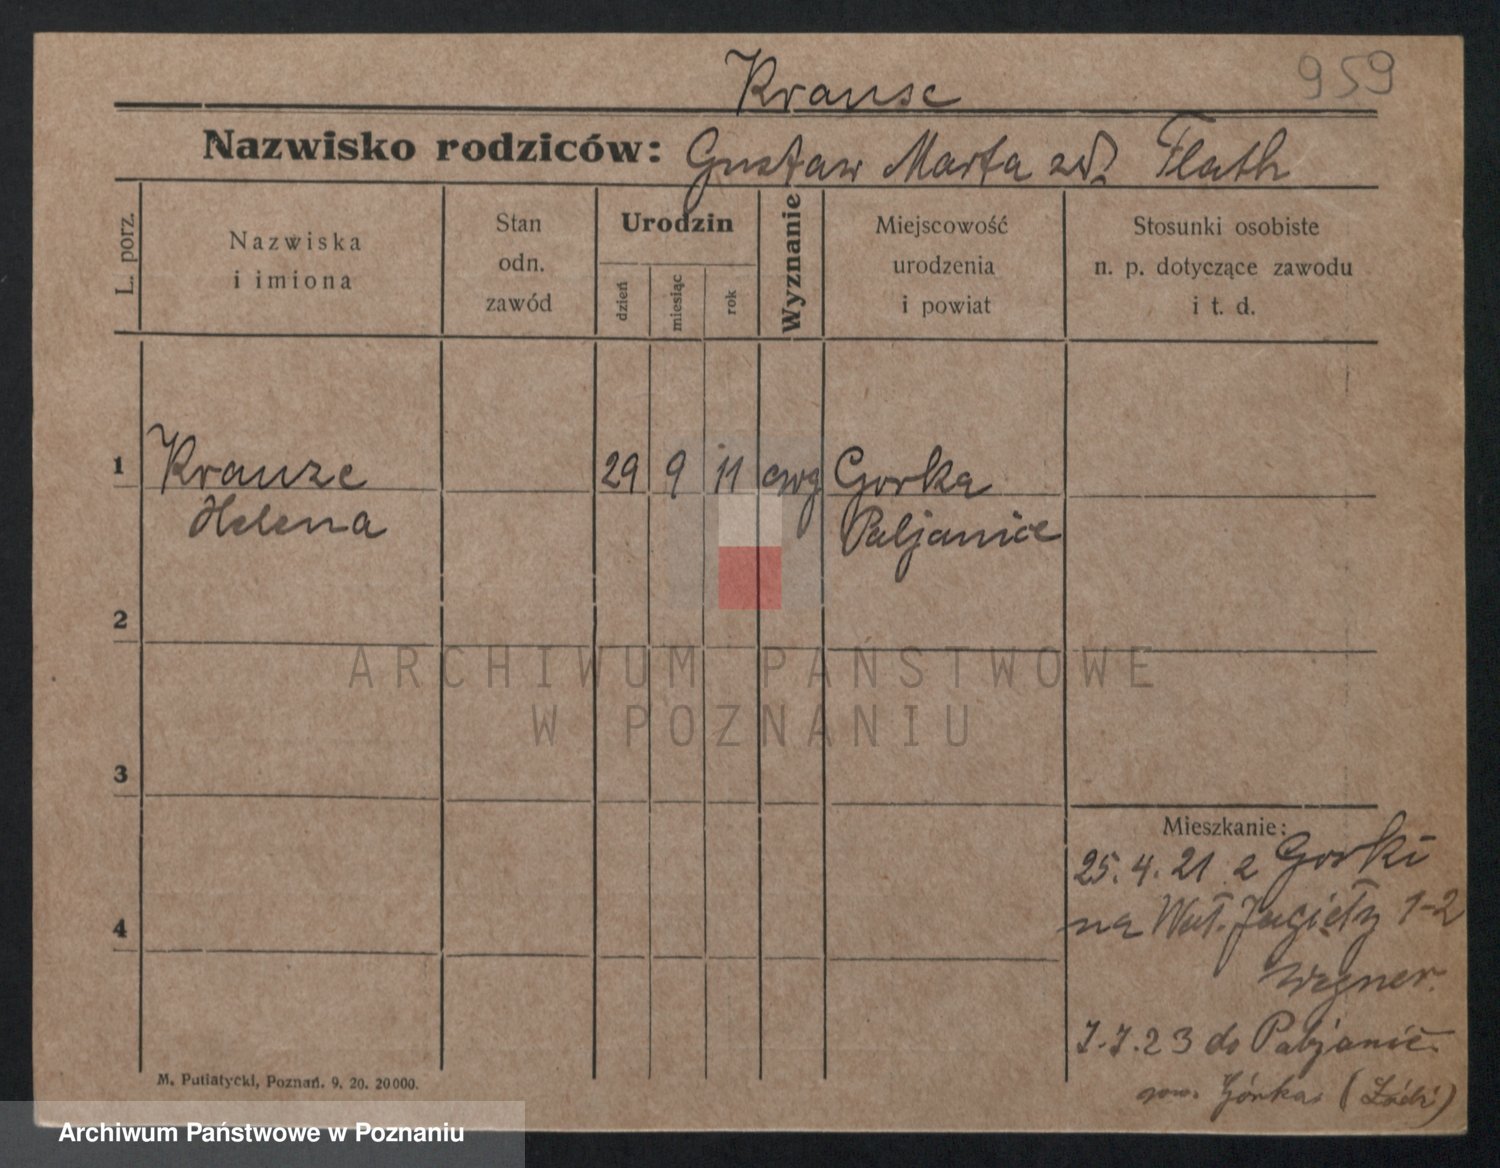 959
Krause
Nazwisko rodziców: Gustaw Marta Flath
L. porz.
Nazwiska
i imiona
Stan
odn.
zawód
Urodzin
dzień
miesiąc
rok
Wyznanie
Miejscowość
urodzenia
i powiat
Stosunki osobiste
n. p. dotyczące zawodu
i t. d.
1 Krauze 29 9 11 ewg Gorka
Helena Pabjanice
2
3
4
ARCHIWUM PAŃSTWOWE
W POZNANIU
Mieszkanie:
25.4.21 z Gorki
na Wał. Jagiełły 1-2
Wegner.
7.7.23 do Pabjanic
Górka (Łódź)
M. Putiatycki, Poznań. 9. 20. 20000.
Archiwum Państwowe w Poznaniu